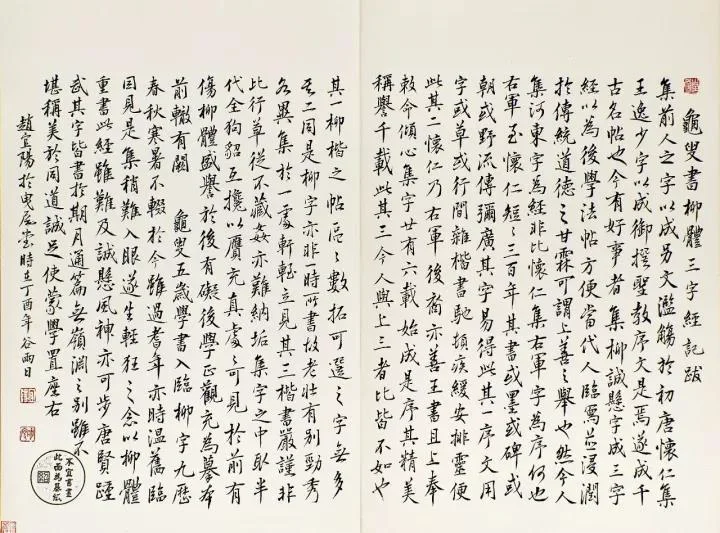 龜叟書柳體三字經記跋
集前人之字以成另文濫觴於初唐懷仁集
王逸少字以成御撰聖教序文是焉遂成千
古名帖也今有好事者集柳誠懸字成三字
經以為後學法帖方便當代人臨寫並浸潤
於傳統道德之甘霖可謂上善之舉也然今人
集河東字為經非比懷仁集右軍字為序何也
右軍至懷仁短短三百年其書或墨或碑或
朝或野流傳彌廣其字易得此其一序文用
字或草或行間雜楷書馳頓疾緩安排靈便
此其二懷仁乃右軍後裔亦善王書且上奉
敕命傾心集字廿有六載始成是序其精美
稱譽千載此其三今人與上三者比皆不如也
其一柳楷之帖區區數拓可選之字無多
其二同是柳字亦非一時所書故老壯有別勁秀
各異集於一處軒輊立見其三楷書嚴謹非
比行草從不藏奸亦難納垢集字之中取半
代全狗貂互攙以贗充真處處可見於前有
傷柳體盛譽於後有礙後學正觀充為摹本
前轍有闕 龜叟五歲學書入臨柳字九歷
春秋寒暑不輟於今雖過耆年亦時溫舊臨
因見是集稍難入眼遂生輕狂之念以柳體
重書此經雖難及誠懸風神亦可步唐賢踵
武其字皆書於期月通篇無嶺淵之別雖不
堪稱美於同道誠足使蒙學置座右
趙宜陽於曳尾堂時在丁酉年谷雨日
不宜書畫
此面為墓紙